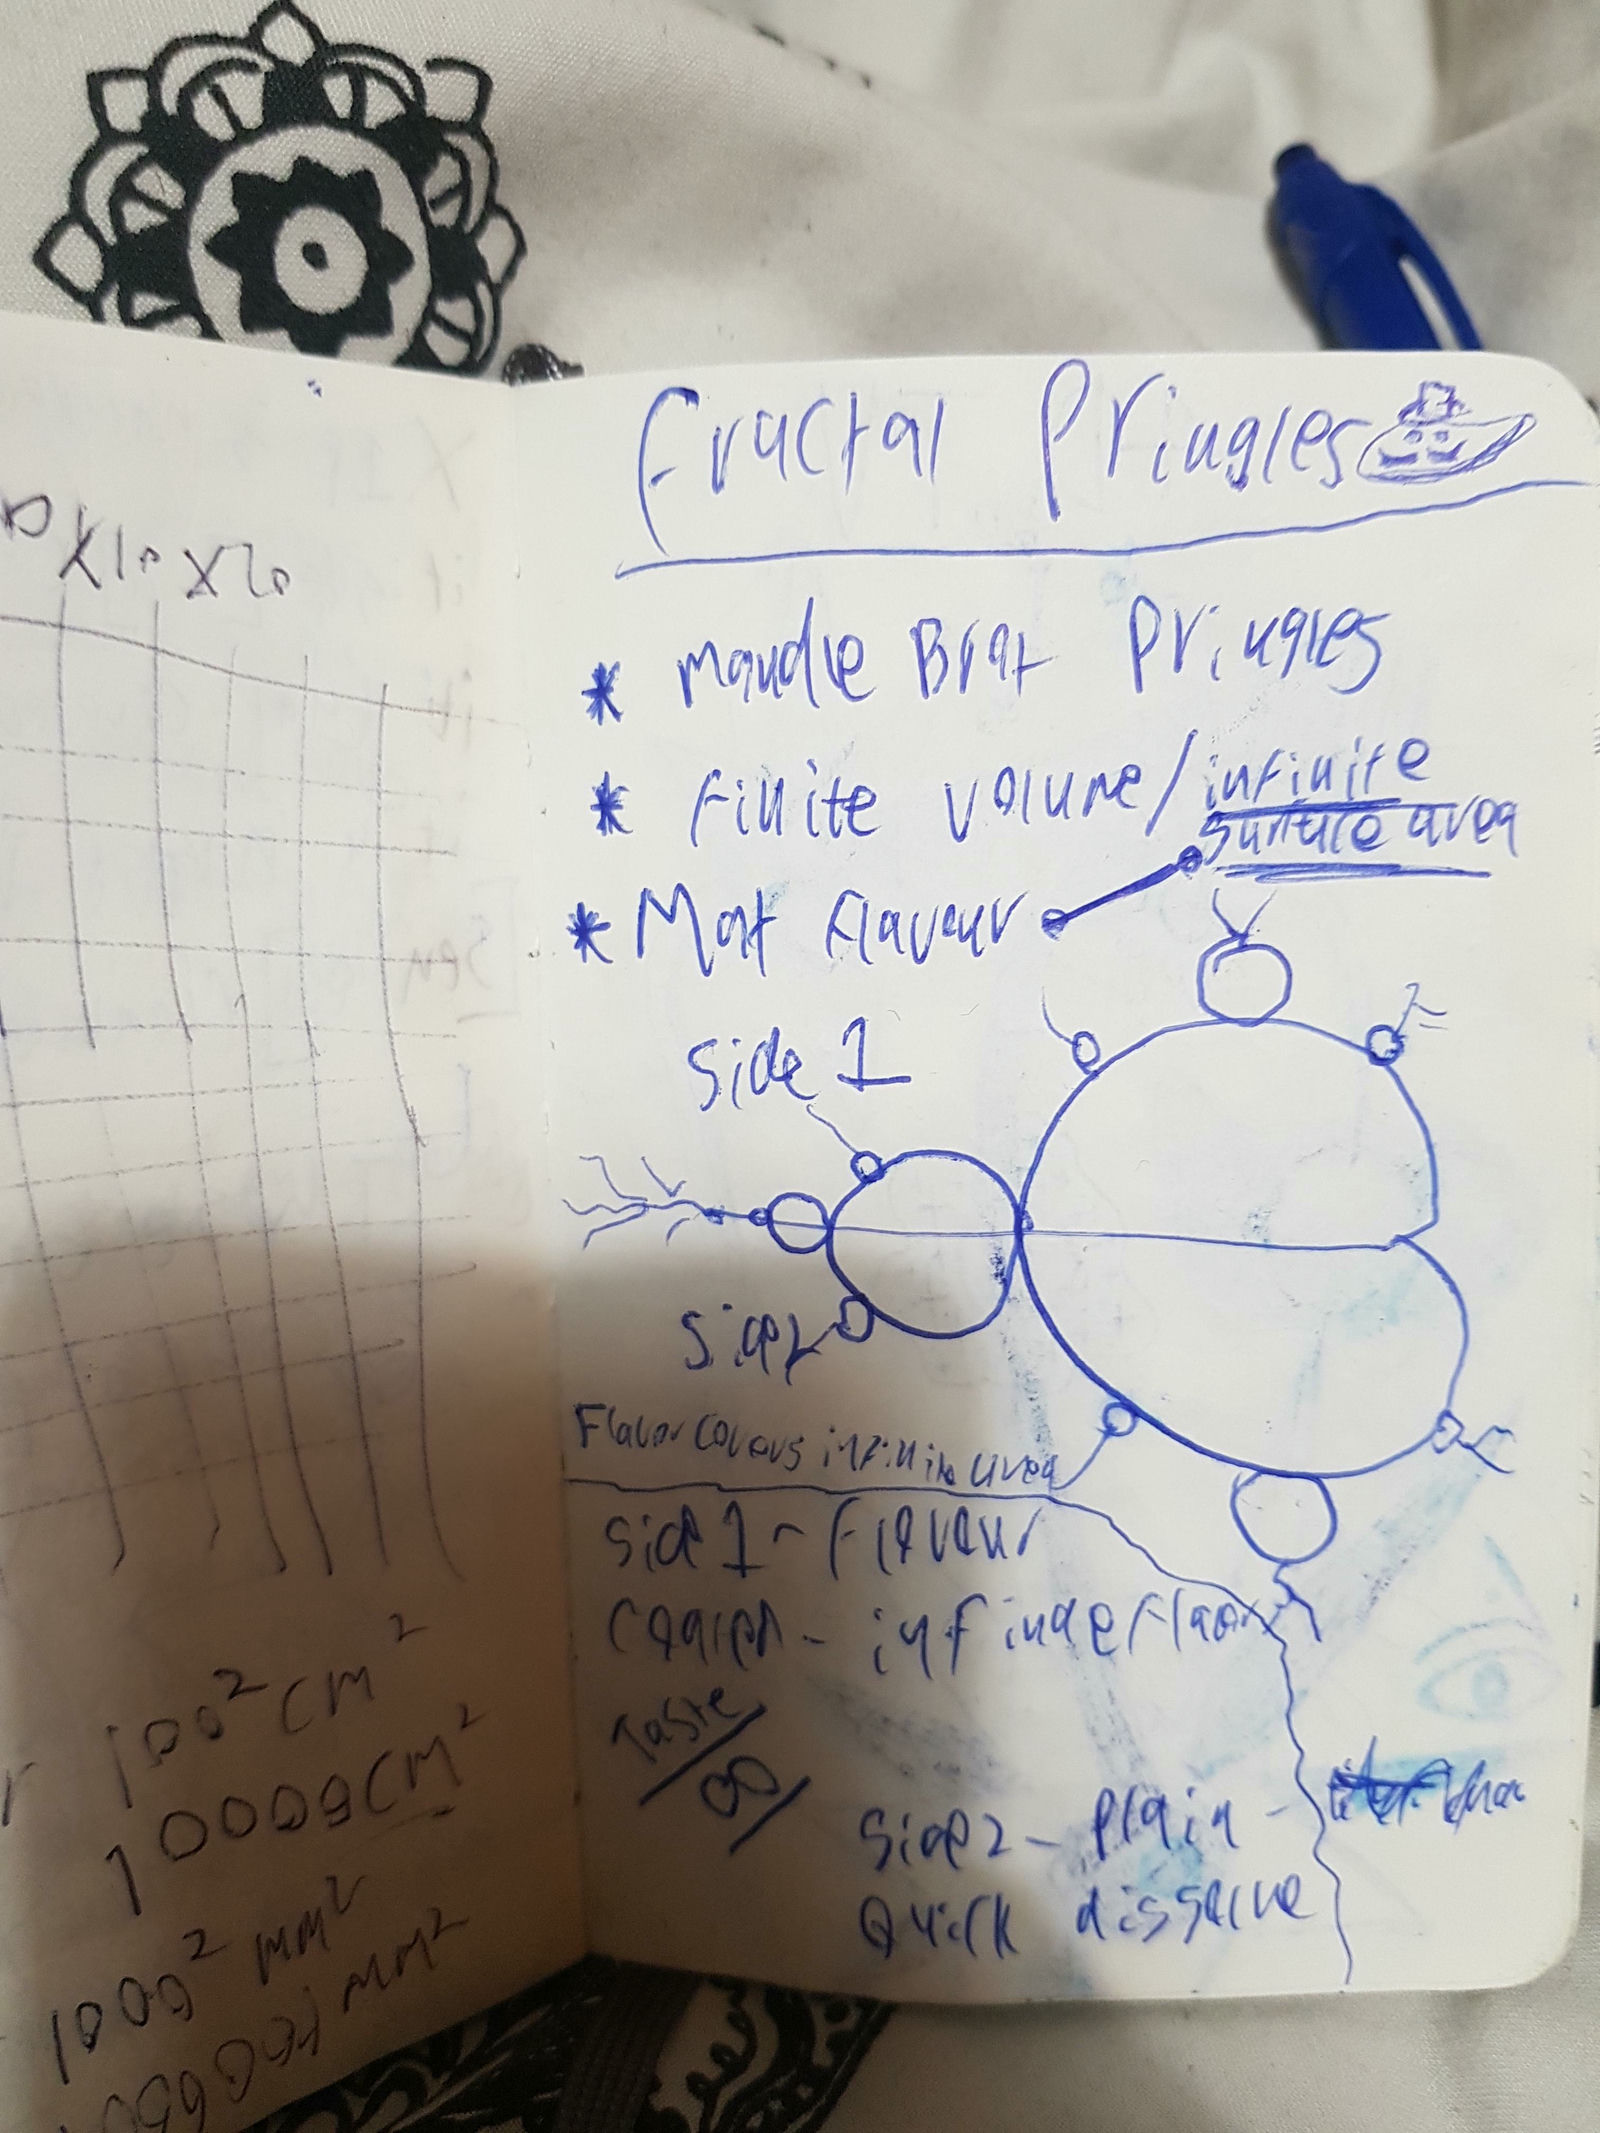 X10 X20
100² CM²
10000 CM²
1000² MM²
MM²
Fractal Pringles
* Mandle Brat Pringles
* Finite volume / infinite
surface area
* Mat Flavour
Side 1
Side 2
Flavor covers infinite area
Side 1 - Flavour
Taste
∞
Side 2 - Plain -
Quick dissolve